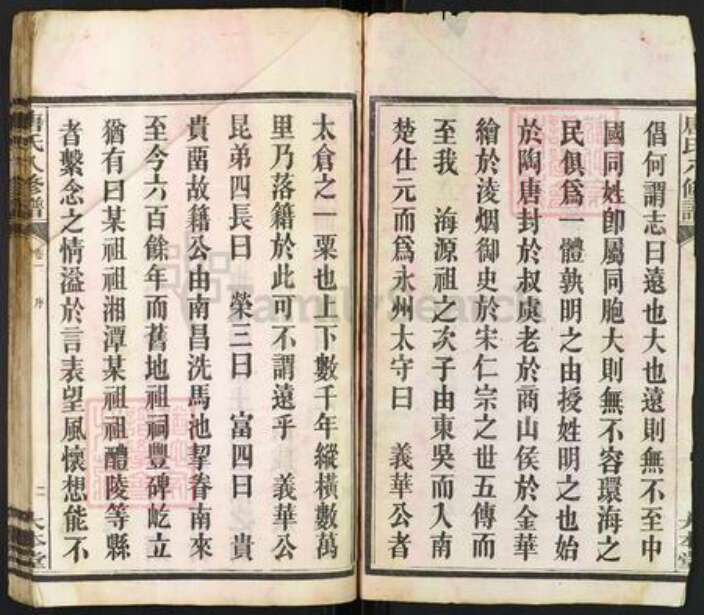 倡何謂志曰遠也大也遠則無不至中
國同姓卽屬同胞大則無不容環海之
民俱爲一體孰明之由授姓明之也始
於陶唐封於叔虞老於商山侯於金華
繪於淩烟御史於宋仁宗之世五傳而
至我 海源祖之次子由東吳而入南
楚仕元而爲永州太守曰 義華公者
太倉之一粟也上下數千年縱橫數萬
里乃落籍於此可不謂遠乎 義華公
昆弟四長曰 榮三曰 富四曰 貴
貴啚故籍公由南昌洗馬池挈眷南來
至今六百餘年而舊地祖祠豐碑屹立
猶有曰某祖祖湘潭某祖祖醴陵等縣
者繫念之情溢於言表望風懷想能不
唐氏八修譜
卷一 序
二 大本堂
FamilySearch